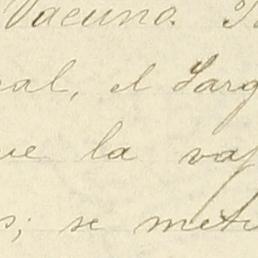 Vacuno.
al, el Sarg
ue la va
s; se met